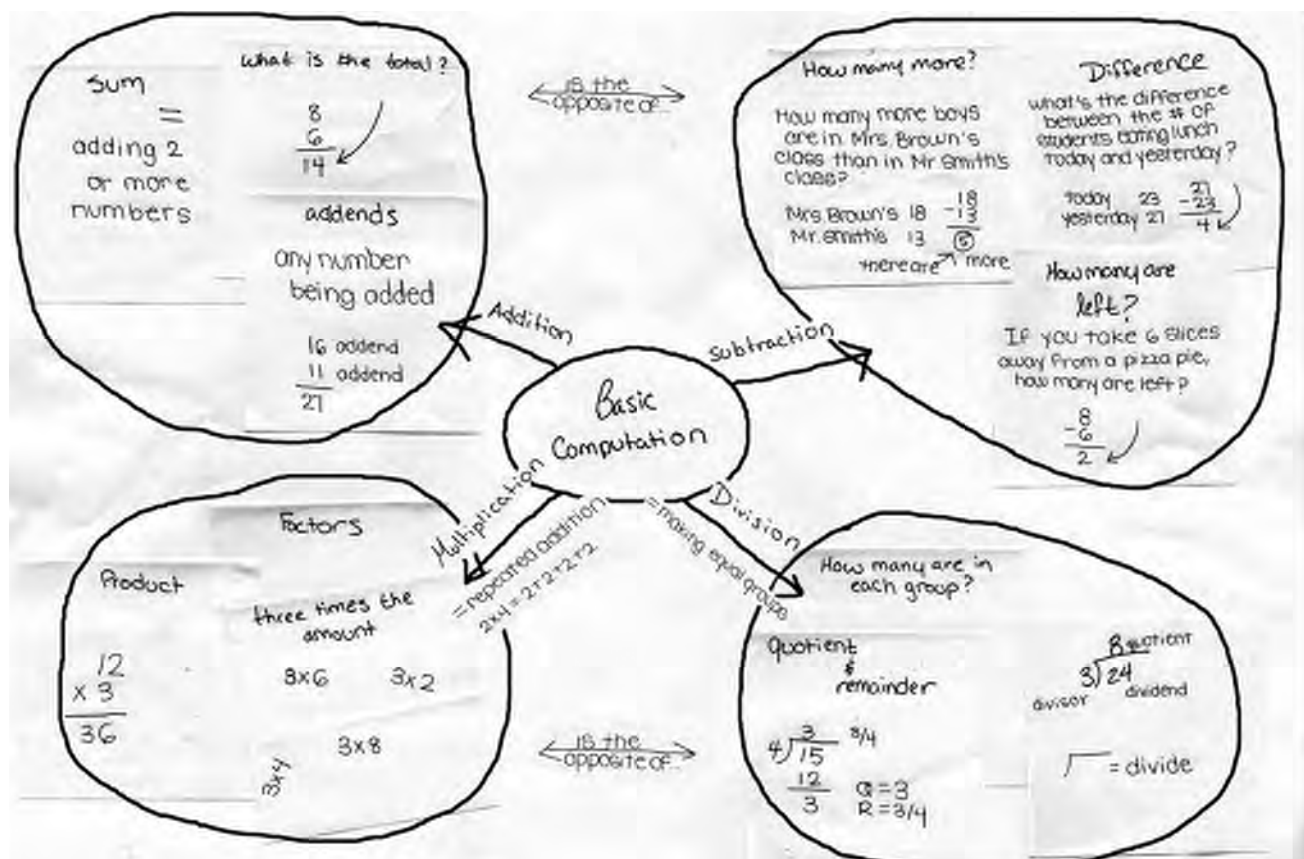 Sum
=
adding 2
or more
numbers
What is the total?
8
6
14
addends
any number
being added
16 addend
11 addend
27
is the
opposite of...
How many more?
How many more boys
are in Mrs. Brown's
class than in Mr Smith's
class?
Mrs. Brown's 18
Mr. Smith's 13
18
-13
5
there are more
Difference
What's the difference
between the # of
students eating lunch
today and yesterday?
today 23
yesterday 27
27
-23
4
How many are
left?
If you take 6 slices
away from a pizza pie,
how many are left?
8
-6
2
Addition
Subtraction
Basic
Computation
Multiplication
= repeated addition
2x4 = 2+2+2+2
Division
= making equal groups
Product
12
x 3
36
Factors
three times the
amount
3x6 3x2
3x8
3x4
is the
opposite of...
How many are in
each group?
Quotient
&
remainder
3 3/4
4)15
12
3
Q = 3
R = 3/4
8 quotient
3)24
divisor dividend
= divide